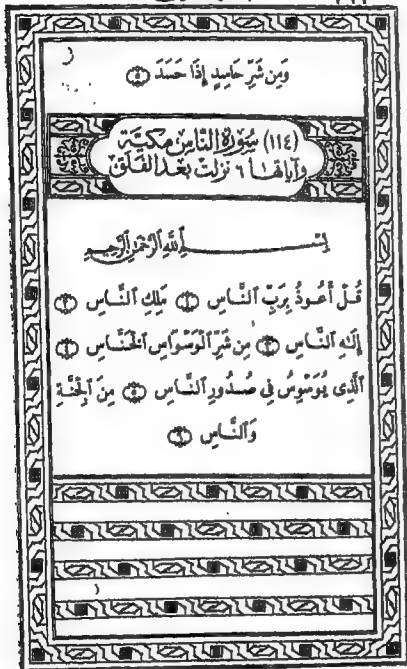 وَمِن شَرِّ حَاسِدٍ إِذَا حَسَدَ ۝٥
(١١٤) سُورَةُ النَّاسِ مَكِيَّة
وَآيَاتُهَا ٦ نَزَلَتْ بَعْدَ الفَلَقِ
بِسْمِ ٱللَّهِ ٱلرَّحْمَٰنِ ٱلرَّحِيمِ
قُلْ أَعُوذُ بِرَبِّ ٱلنَّاسِ ۝١ مَلِكِ ٱلنَّاسِ ۝٢
إِلَٰهِ ٱلنَّاسِ ۝٣ مِن شَرِّ ٱلْوَسْوَاسِ ٱلْخَنَّاسِ ۝٤
ٱلَّذِى يُوَسْوِسُ فِى صُدُورِ ٱلنَّاسِ ۝٥ مِنَ ٱلْجِنَّةِ
وَٱلنَّاسِ ۝٦